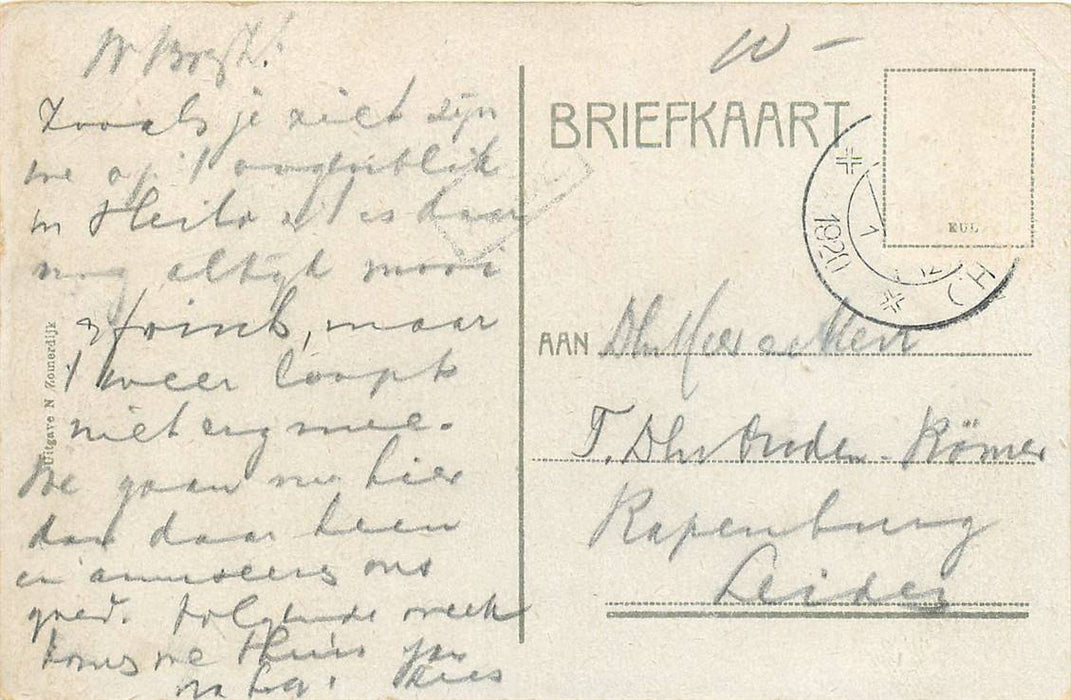 Zooals je ziet zijn
we op 't oogenblik
in Heilo en 't is daar
nog altijd mooi
en frisch, maar
't weer loopt
niet erg mee.
We gaan nu hier
dan daar heen
en amuseeren ons
goed. Volgende week
komen we thuis
Kees
Uitgave N Zomerdijk
W -
BRIEFKAART
1920
AAN
T. Dhr Ouden-Römer
Rapenburg
Leiden